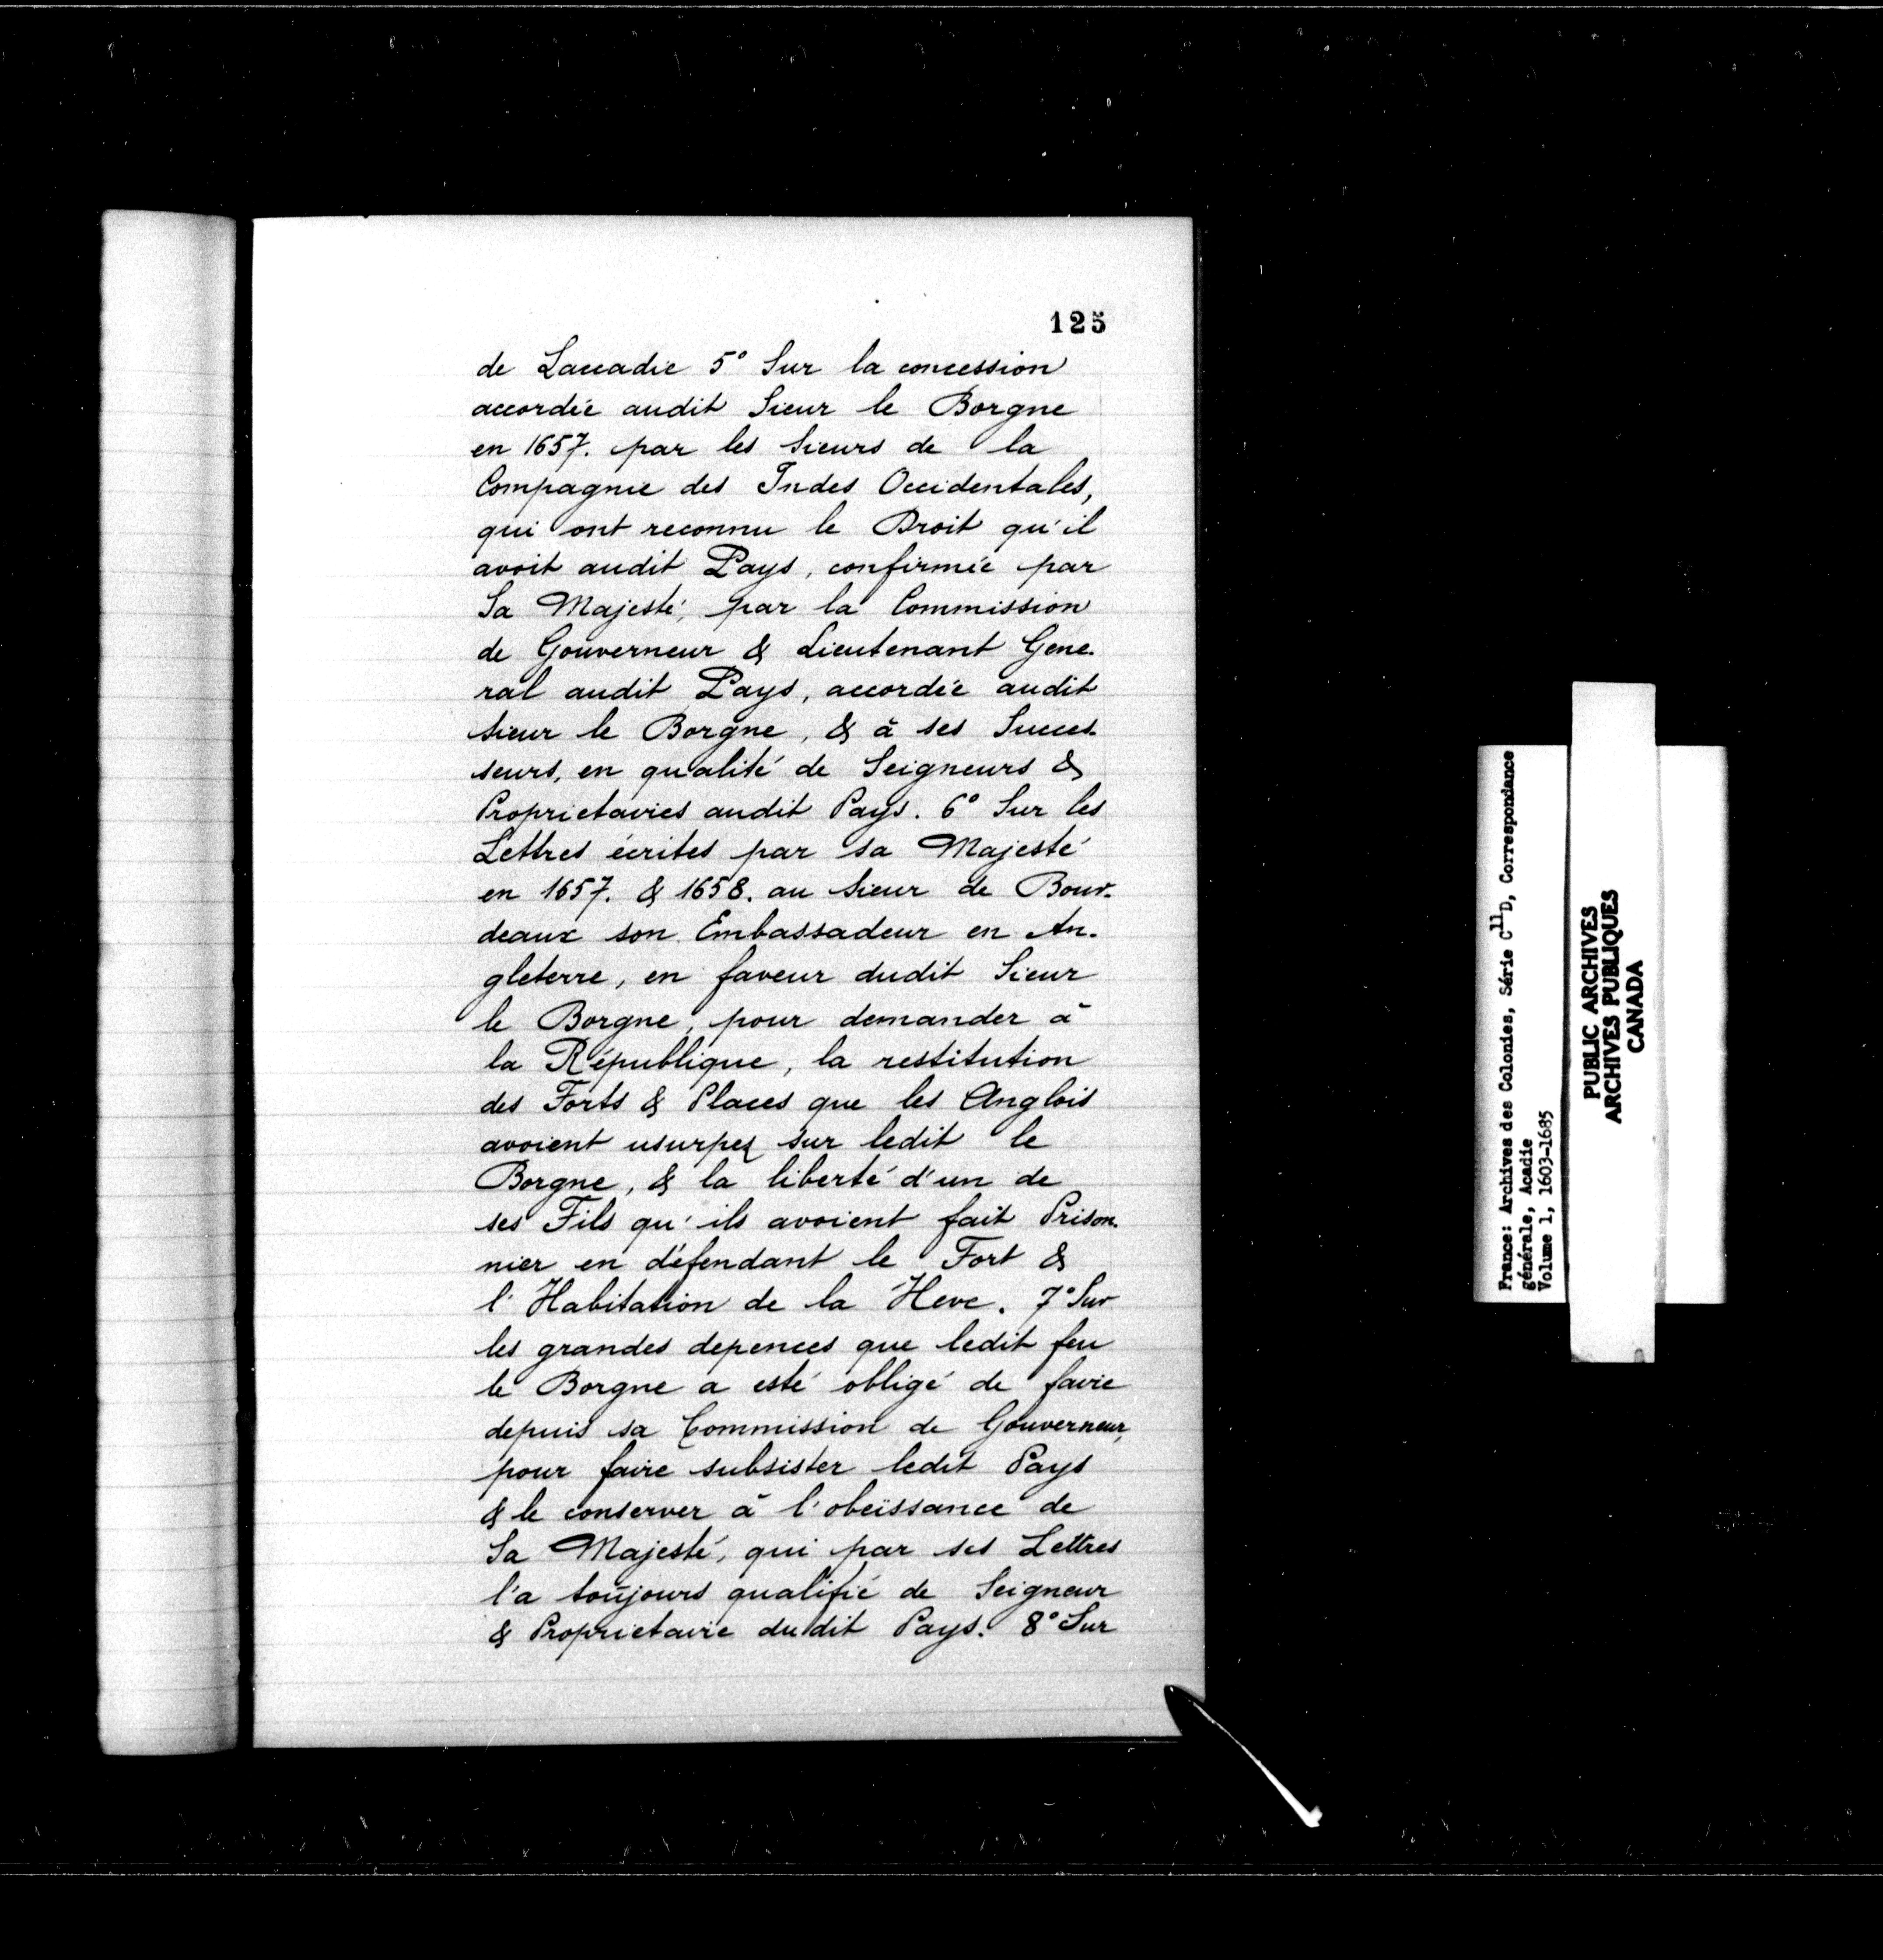 125
de Laccadie 5° Sur la concession
accordée audit Sieur le Borgne
en 1657. par les Sieurs de la
Compagnie des Indes Occidentales,
qui ont reconnu le Droit qu'il
avoit audit Pays, confirmée par
Sa Majesté, par la Commission
de Gouverneur & Lieutenant Gene-
ral audit Pays, accordée audit
Sieur le Borgne, & à ses Succes-
seurs, en qualité de Seigneurs &
Proprietaires audit Pays. 6° Sur les
Lettres écrites par sa Majesté
en 1657. & 1658. au Sieur de Bour-
deaux son Embassadeur en An-
gleterre, en faveur dudit Sieur
le Borgne, pour demander à
la République, la restitution
des Forts & Places que les Anglois
avoient usurpez sur ledit le
Borgne, & la liberté d'un de
ses Fils qu'ils avoient fait Prison-
nier en défendant le Fort &
l'Habitation de la Heve. 7° Sur
les grandes depences que ledit feu
le Borgne a esté obligé de faire
depuis sa Commission de Gouverneur,
pour faire subsister ledit Pays
& le conserver à l'obeïssance de
Sa Majesté, qui par ses Lettres
l'a toûjours qualifié de Seigneur
& Proprietaire dudit Pays. 8° Sur
France: Archives des Colonies, Série C11D, Correspondance
générale, Acadie
Volume 1, 1603-1685
PUBLIC ARCHIVES
ARCHIVES PUBLIQUES
CANADA